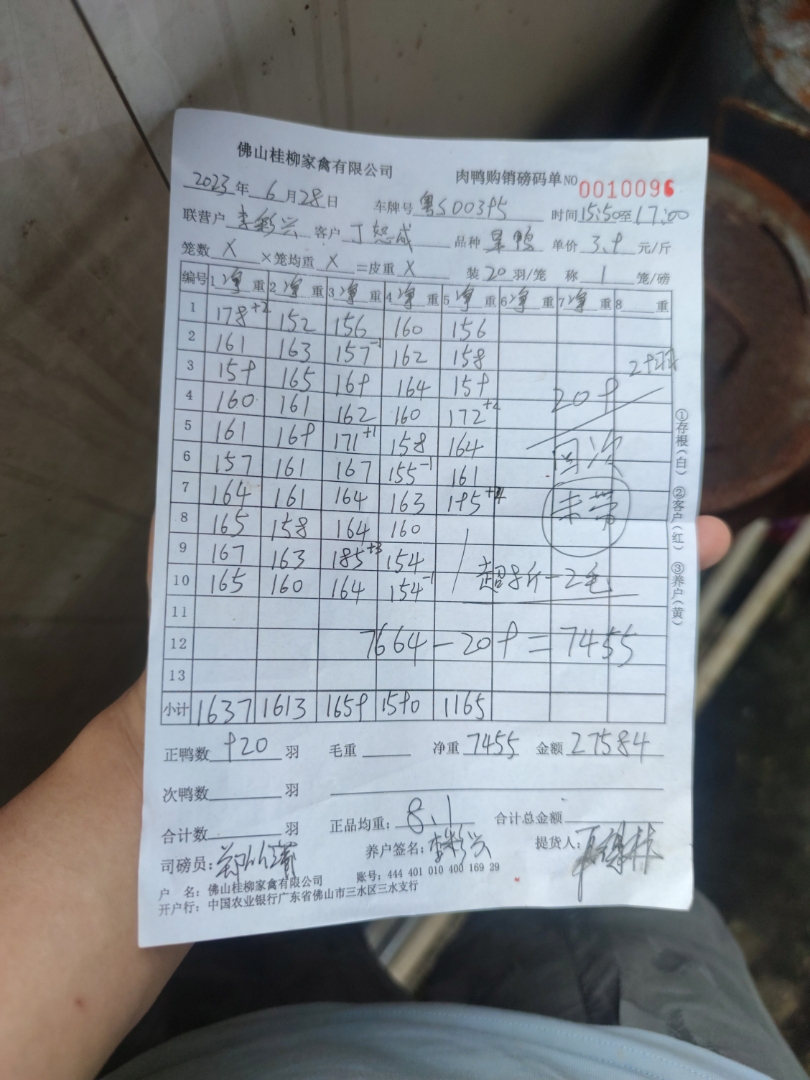 佛山桂柳家禽有限公司 肉鸭购销磅码单NO 0010096
2023年6月28日 车牌号 粤S003P5 时间15:50至17:00
联营户 李彩兴 客户 丁 品种 鸭 单价 3.9 元/斤
笼数 X ×笼均重 X =皮重 X 装 20 羽/笼 称 1 笼/磅
编号 1 净 重 2 净 重 3 净 重 4 净 重 5 净 重 6 净 重 7 净 重 8 重
1 178+2 152 156 160 156
2 161 163 157-1 162 158
3 159 165 169 164 159 29羽
4 160 161 162 160 172+2 209
5 161 169 171+1 158 164
6 157 161 167 155-1 161
7 164 161 164 163 195+4
8 165 158 164 160
9 167 163 185+3 154
10 165 160 164 154-1 超8斤-2毛
11
12 7664-209=7455
13
小计 1637 1613 1659 1590 1165
正鸭数 920 羽 毛重 净重 7455 金额 27584
次鸭数 羽
合计数 羽 正品均重: 8.1 合计总金额
司磅员: 养户签名: 李彩兴 提货人:
户 名: 佛山桂柳家禽有限公司 账号: 444 401 010 400 169 29
开户行: 中国农业银行广东省佛山市三水区三水支行
①存根(白) ②客户(红) ③养户(黄)